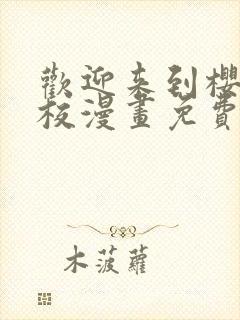 歡迎来到櫻
板漫畫免費
木菠蘿